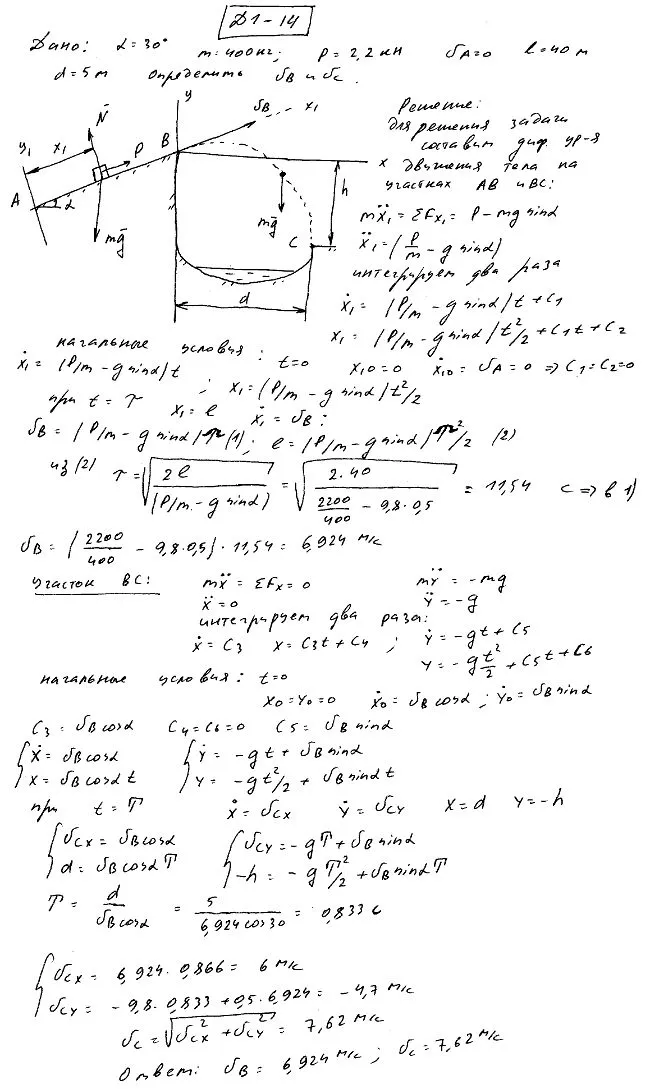 Д1-14
Дано: α=30° m=400кг; P=2,2 кН υA=0 l=40 м
d=5м определить υB и υC.
y υB x1
N̄ y1 x1 P B x
A α mḡ mḡ h C d
Решение:
для решения задачи
составим диф. ур-я
движения тела на
участках АВ и ВС:
mẍ1 = ΣFx1 = P - mg sinα
ẍ1 = (P/m - g sinα)
интегрируем два раза
ẋ1 = (P/m - g sinα)t + C1
x1 = (P/m - g sinα)t²/2 + C1t + C2
начальные условия: t=0 x10=0 ẋ10=υA=0 => C1=C2=0
ẋ1 = (P/m - g sinα)t ; x1=(P/m - g sinα)t²/2
при t=τ x1=l ẋ1=υB:
υB = (P/m - g sinα)τ (1); l=(P/m - g sinα)τ²/2 (2)
из (2) τ = √(2l/(P/m - g sinα)) = √(2·40/(2200/400 - 9,8·0,5)) = 11,54 с => в 1)
υB = (2200/400 - 9,8·0,5)·11,54 = 6,924 м/с
Участок ВС: mẍ = ΣFx = 0 mÿ = -mg
ẍ=0 ÿ = -g
интегрируем два раза:
ẋ = C3 x = C3t + C4 ; ẏ = -gt + C5
y = -gt²/2 + C5t + C6
начальные условия: t=0
x0=y0=0 ẋ0=υB cosα; ẏ0=υB sinα
C3 = υB cosα C4=C6=0 C5 = υB sinα
{ẋ = υB cosα {ẏ = -gt + υB sinα
{x = υB cosα t {y = -gt²/2 + υB sinα t
при t=T ẋ = υCx ẏ = υCy x=d y=-h
{υCx = υB cosα {υCy = -gT + υB sinα
{d = υB cosα T {-h = -gT²/2 + υB sinα T
T = d/(υB cosα) = 5/(6,924 cos30) = 0,833 с
{υCx = 6,924·0,866 = 6 м/с
{υCy = -9,8·0,833 + 0,5·6,924 = -4,7 м/с
υC = √(υCx² + υCy²) = 7,62 м/с
Ответ: υB = 6,924 м/с ; υC = 7,62 м/с